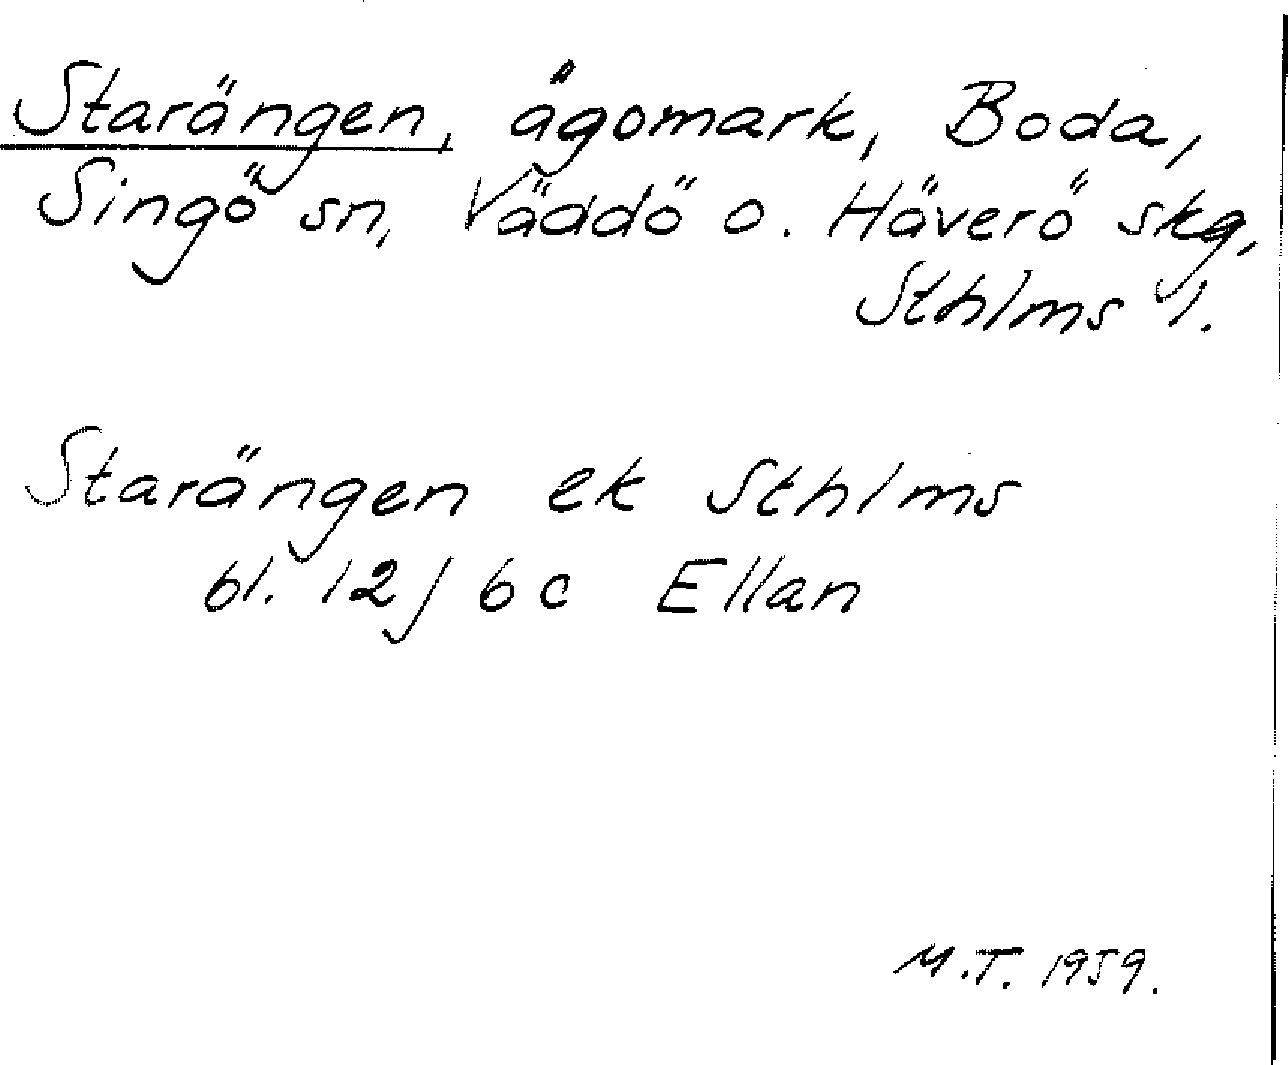 Starängen, ägomark, Boda,
Singö sn, Väddö o. Häverö skg,
Sthlms l.
Starängen ek Sthlms
bl. 12 j 6 c Ellan
M.T. 1959.